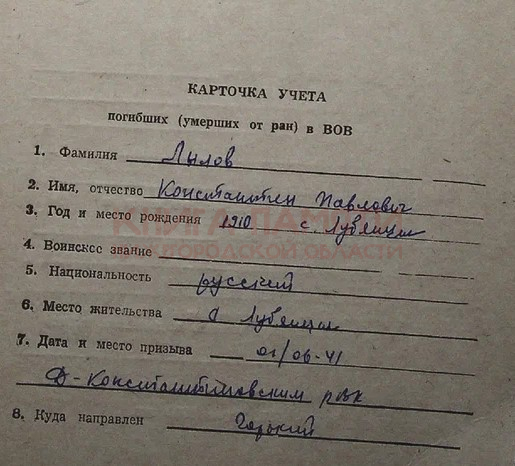 КАРТОЧКА УЧЕТА
погибших (умерших от ран) в ВОВ
1. Фамилия Лылов
2. Имя, отчество Константин Павлович
3. Год и место рождения 1910 с. Лубянцы
КНИГА ПАМЯТИ
НИЖЕГОРОДСКОЙ ОБЛАСТИ
4. Воинское звание
5. Национальность русский
6. Место жительства с Лубянцы
7. Дата и место призыва 01/06-41
Д-Константиновским рвк
8. Куда направлен Горький